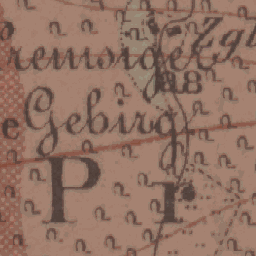 Premsiger Zgl
88
e Gebirg
P r